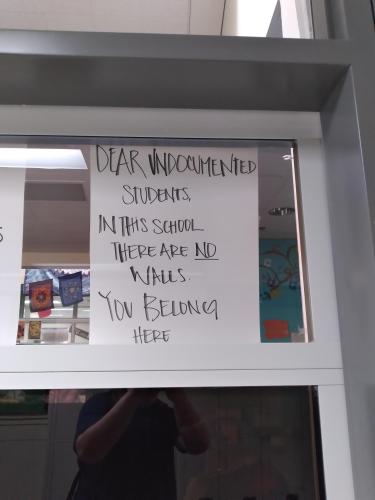 DEAR UNDOCUMENTED
STUDENTS,
IN THIS SCHOOL
THERE ARE NO
WALLS.
YOU BELONG
HERE